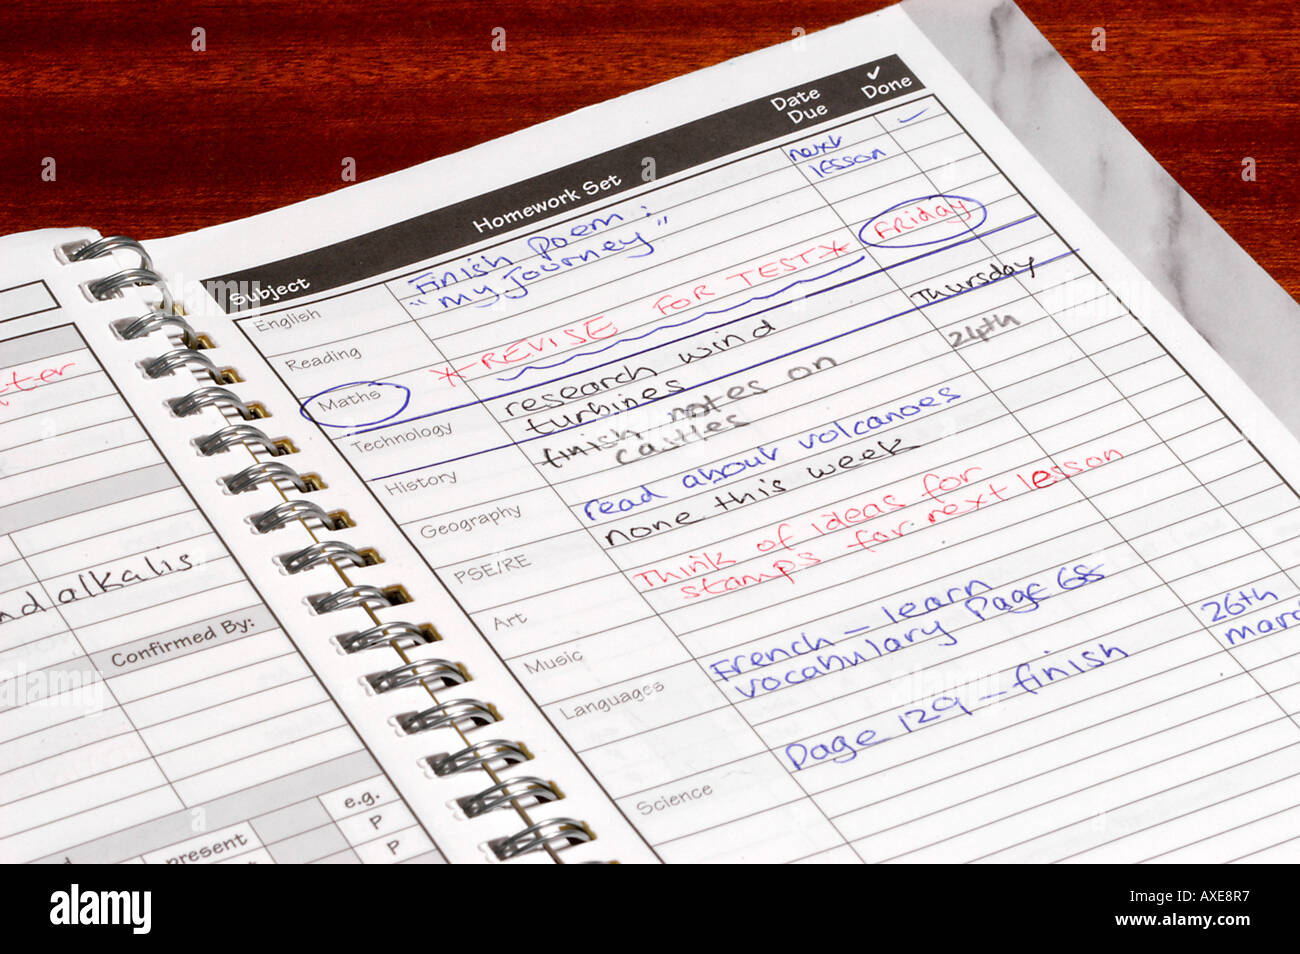 Subject Homework Set Date Due ✓ Done
English Finish poem : next ✓
"my journey" lesson
Reading
Maths *REVISE FOR TEST* FRIday
Technology research wind Thursday
turbines
History finish notes on 24th
castles
Geography read about volcanoes
PSE/RE none this week
Art Think of ideas for
stamps for next lesson
Music
Languages French – learn 26th
vocabulary page 68 marc
page 129 – finish
Science
tter
nd alkalis
Confirmed By:
e.g.
present P
P
alamy
Image ID: AXE8R7
www.alamy.com